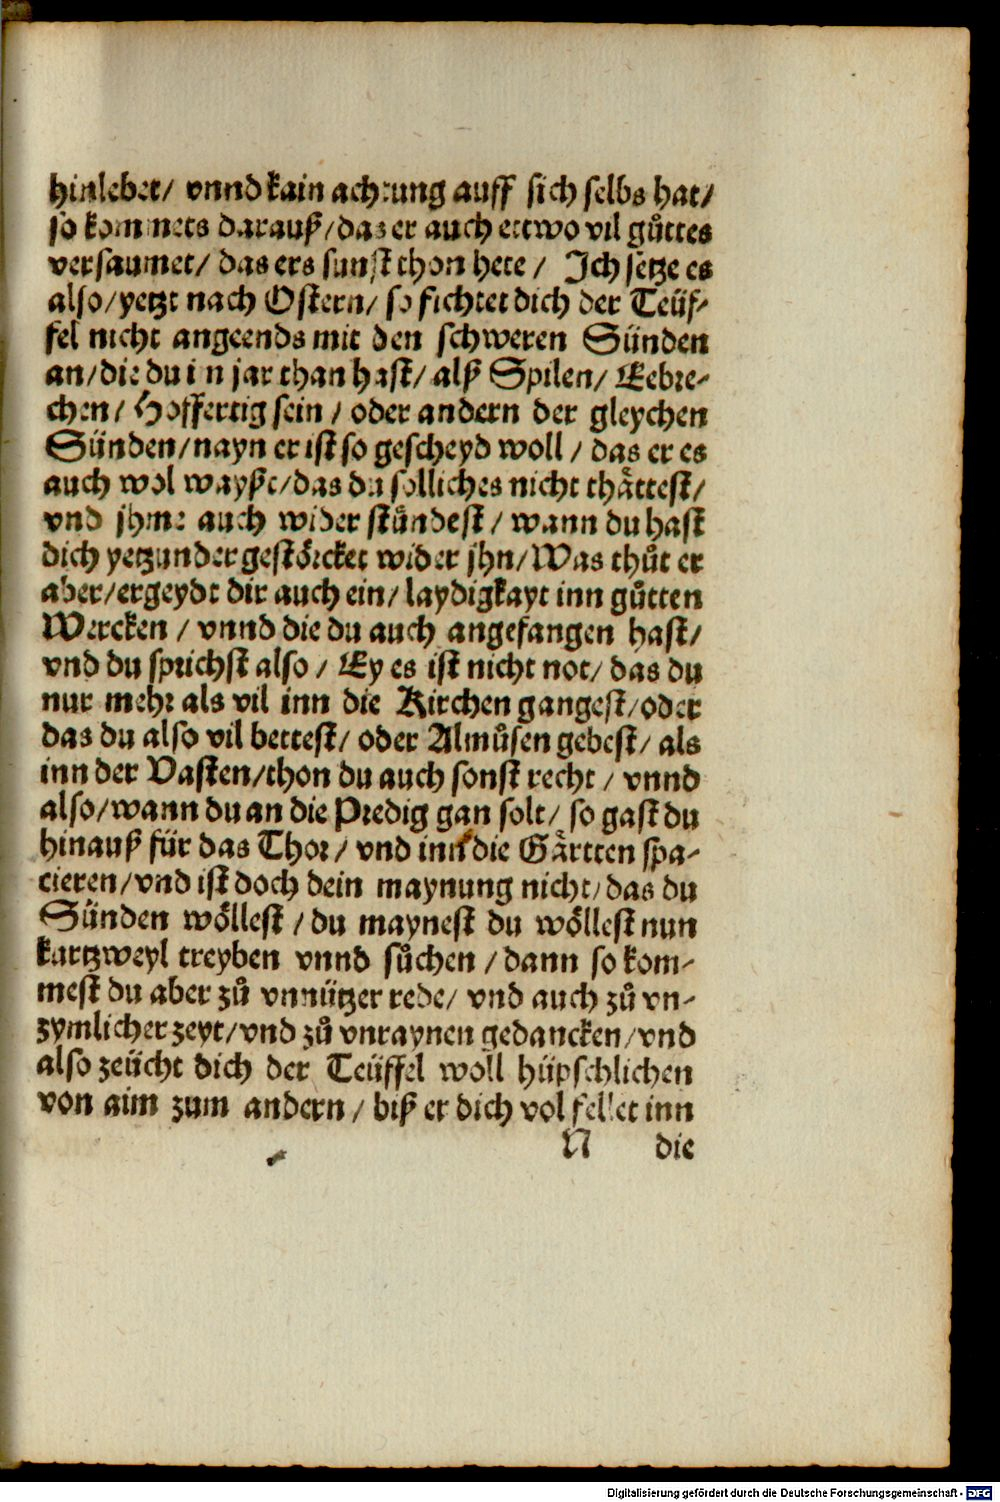 hinlebet/ vnnd kain achtung auff sich selbs hat/
so kommets darauß/ das er auch ettwo vil gůttes
versaumet/ das ers sunst thon hete / Ich setze es
also/ yetzt nach Ostern/ so fichtet dich der Teüf-
fel nicht angeends mit den schweren Sünden
an/ die du im jar than hast/ alß Spilen/ Eebre-
chen/ Hoffertig sein / oder andern der gleychen
Sünden/ nayn er ist so gescheyd woll / das er es
auch wol wayßt/ das du solliches nicht thättest/
vnd jhme auch wider stůndest / wann du hast
dich yetzunder gestöcket wider jhn/ Was thůt er
aber/ er geydt dir auch ein/ laydigkayt inn gůtten
Wercken / vnnd die du auch angefangen hast/
vnd du sprichst also / Ey es ist nicht not/ das du
nur mehr als vil inn die Kirchen gangest/ oder
das du also vil bettest/ oder Almůsen gebest/ als
inn der Vasten/ thon du auch sonst recht / vnnd
also/ wann du an die Predig gan solt/ so gast du
hinauß für das Thor/ vnd inn die Gärtten spa-
cieren/ vnd ist doch dein maynung nicht/ das du
Sünden wöllest / du maynest du wöllest nun
kurtzweyl treyben vnnd sůchen / dann so kom-
mest du aber zů vnnützer rede/ vnd auch zů vn-
zymlicher zeyt/ vnd zů vnraynen gedancken/ vnd
also zeücht dich der Teüffel woll hüpschlichen
von aim zum andern / biß er dich vol fellet inn
N die
Digitalisierung gefördert durch die Deutsche Forschungsgemeinschaft - DFG